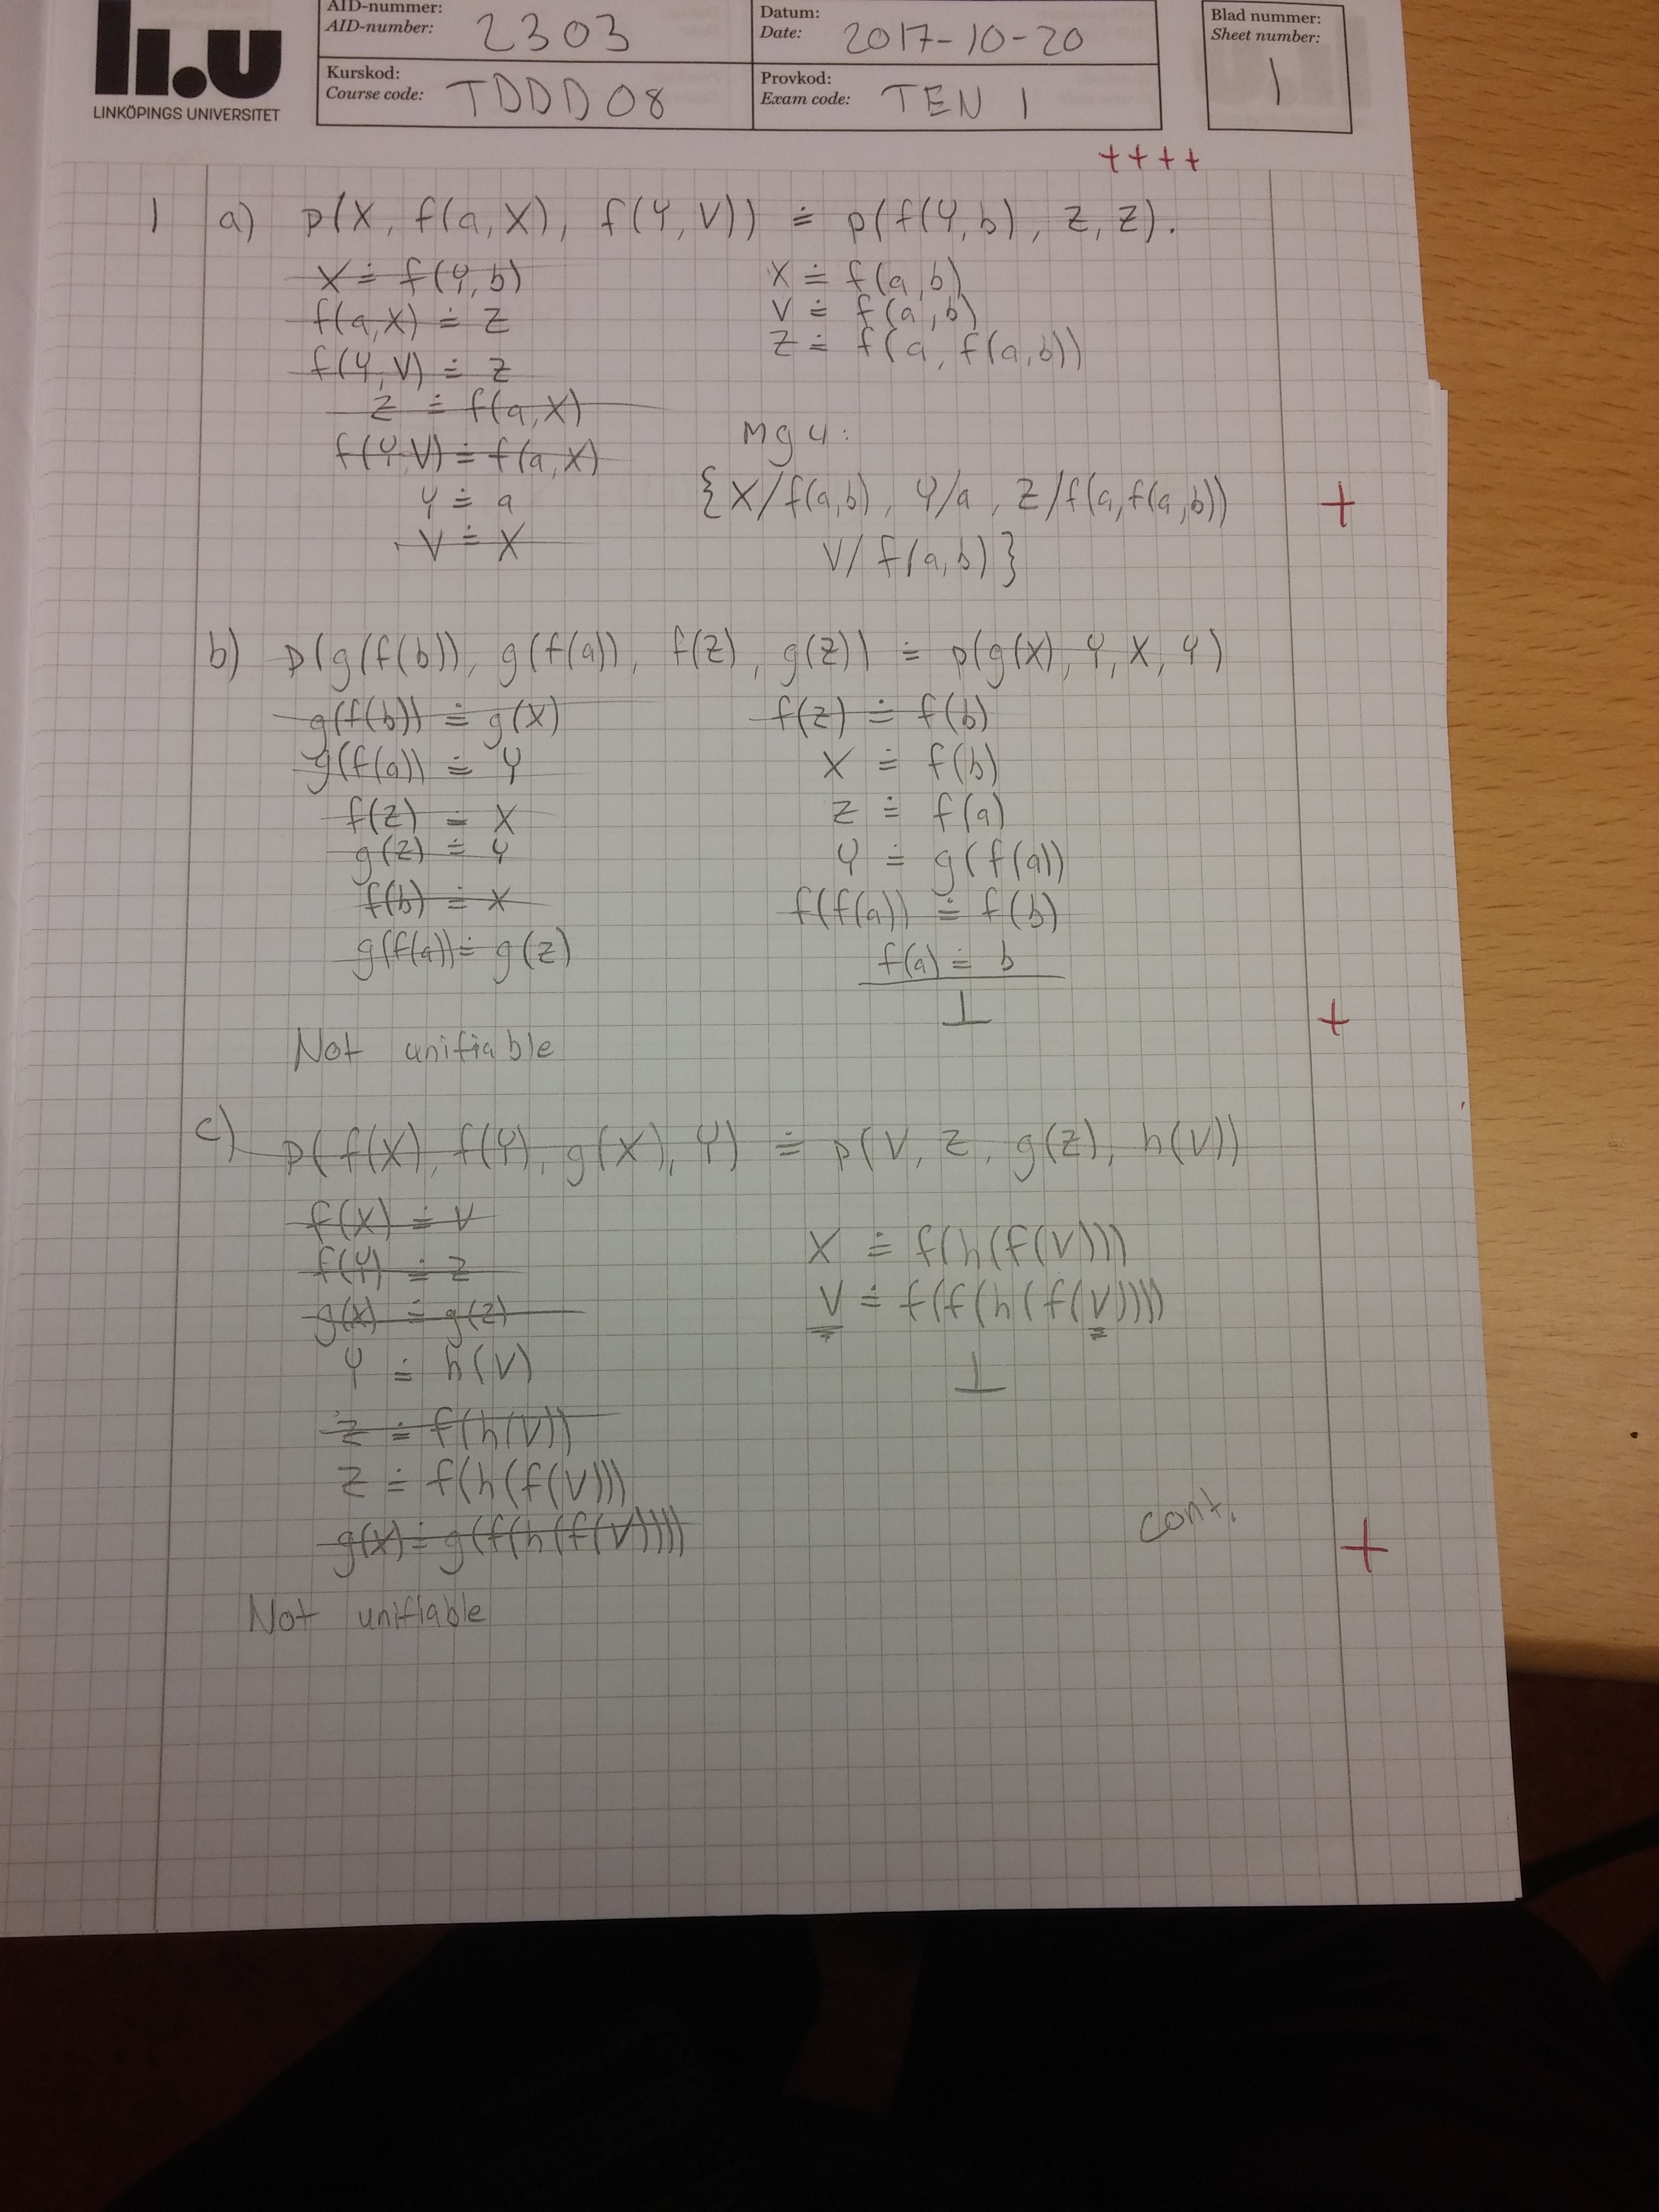 li.u
LINKÖPINGS UNIVERSITET
AID-nummer:
AID-number: 2303
Datum:
Date: 2017-10-20
Blad nummer:
Sheet number:
1
Kurskod:
Course code: TDDD08
Provkod:
Exam code: TEN 1
++++
1 a) p(X, f(a,X), f(Y,V)) ≐ p(f(Y,b), Z, Z).
X ≐ f(Y,b)
f(a,X) ≐ Z
f(Y,V) ≐ Z
Z ≐ f(a,X)
f(Y,V) ≐ f(a,X)
Y ≐ a
V ≐ X
X ≐ f(a,b)
V ≐ f(a,b)
Z ≐ f(a, f(a,b))
Mgu:
{X/f(a,b), Y/a, Z/f(a,f(a,b))
V/f(a,b)}
+
b) p(g(f(b)), g(f(a)), f(Z), g(Z)) ≐ p(g(X), Y, X, Y)
g(f(b)) ≐ g(X)
g(f(a)) ≐ Y
f(Z) ≐ X
g(Z) ≐ Y
f(b) ≐ X
g(f(a)) ≐ g(Z)
f(Z) ≐ f(b)
X ≐ f(b)
Z ≐ f(a)
Y ≐ g(f(a))
f(f(a)) ≐ f(b)
f(a) ≐ b
⊥
+
Not unifiable
c) p(f(X), f(Y), g(X), Y) ≐ p(V, Z, g(Z), h(V))
f(X) ≐ V
f(Y) ≐ Z
g(X) ≐ g(Z)
Y ≐ h(V)
Z ≐ f(h(V))
Z ≐ f(h(f(V)))
g(X) ≐ g(f(h(f(V))))
X ≐ f(h(f(V)))
V ≐ f(f(h(f(V))))
⊥
cont.
+
Not unifiable